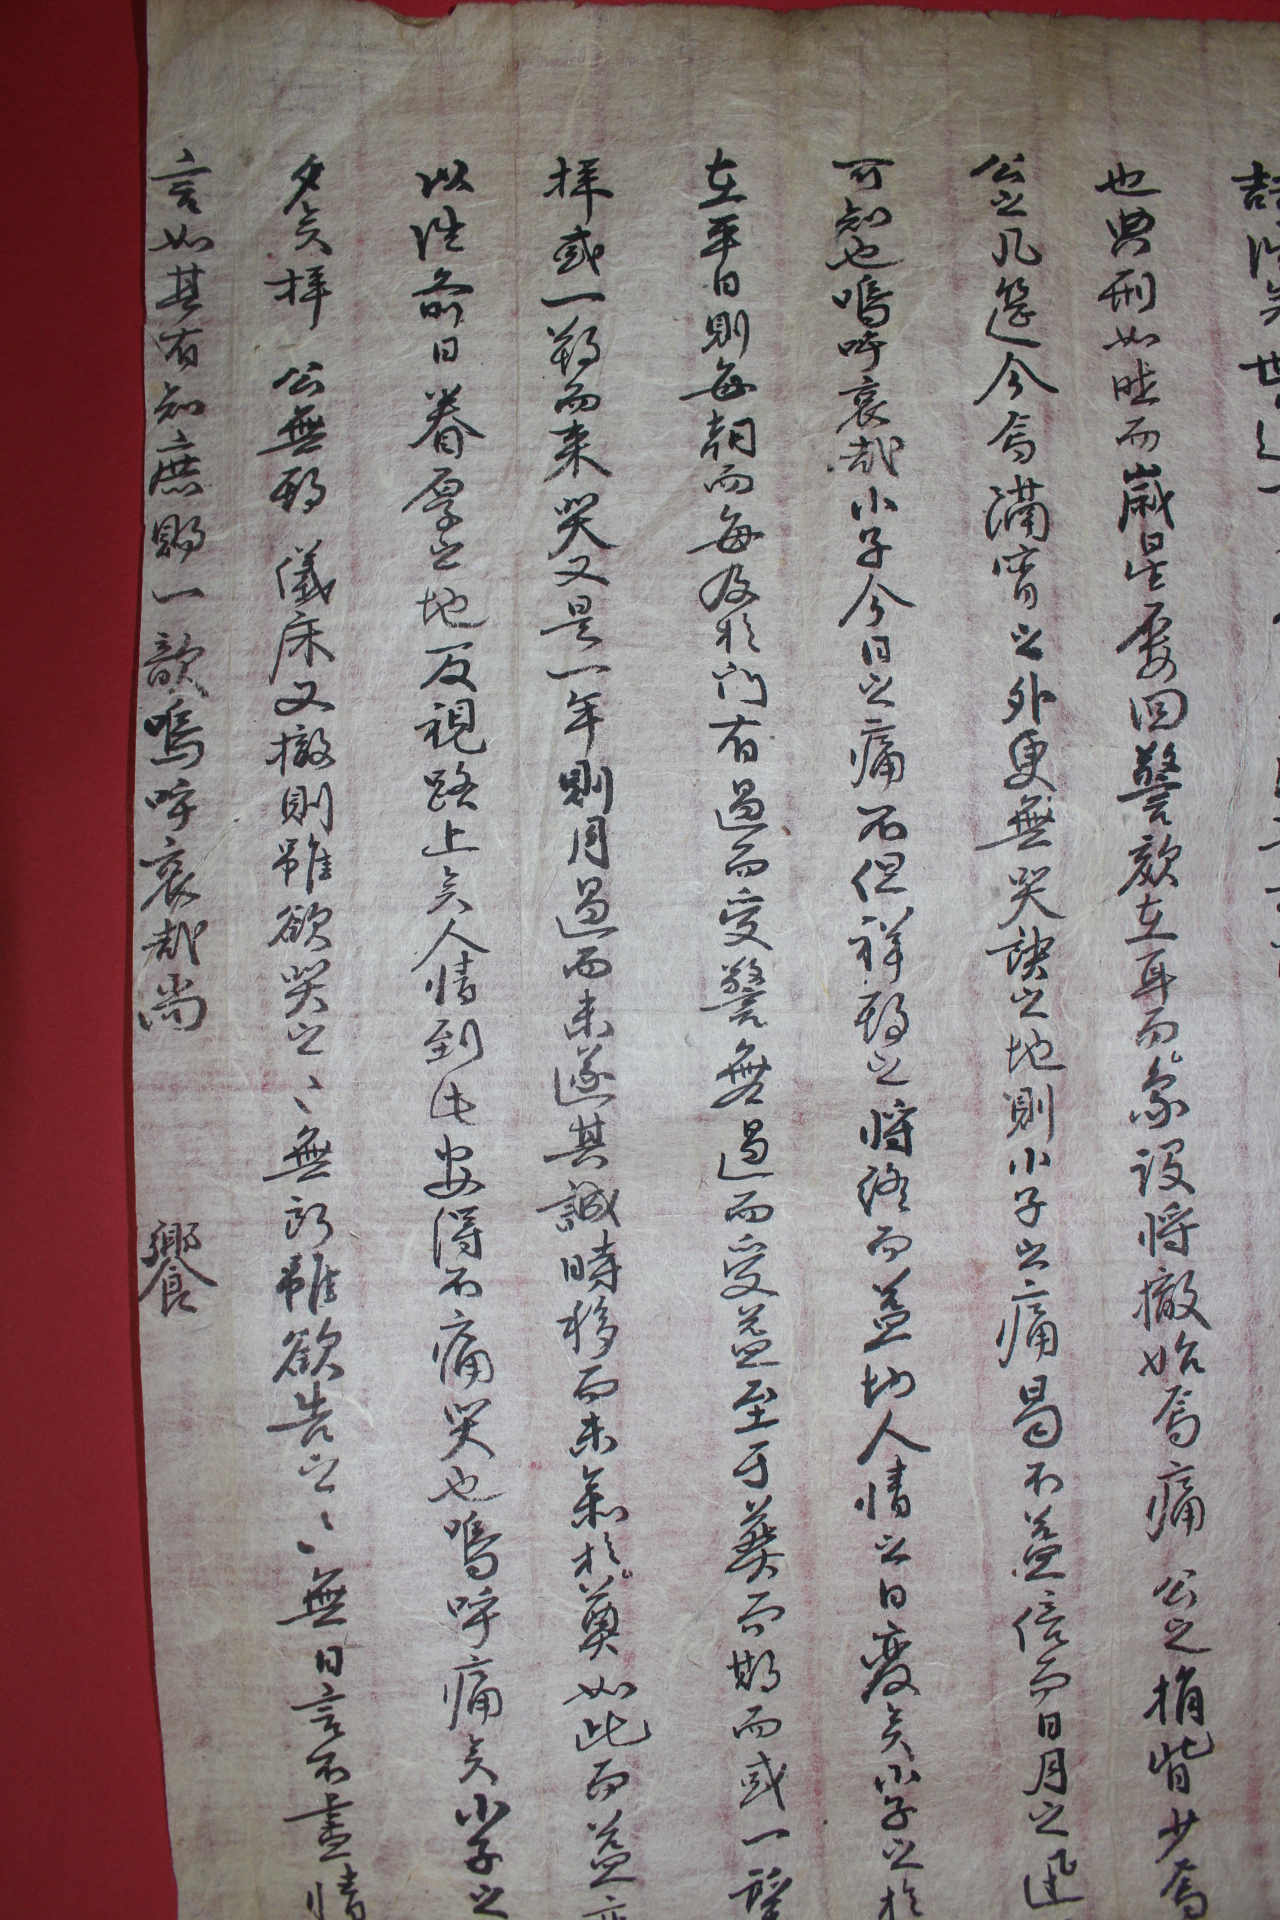 也典刑如昨而歲星屢回警欬在耳而象設將撤始焉痛 公之捐背少焉
公之几筵今焉滿宵之外更無哭訣之地則小子之痛曷不益倍而日月之迅
可知也嗚呼哀哉小子今日之痛不但祥期之將終而益切人情之日變矣小子之於
在平日則每朝而每及於門有過而受警無過而受益至于葬而期而或一
拜或一鞠而來哭又是一年則月過而未遂其誠時移而未參於奠如此而益
以往前日眷厚之地反視路上矣人情到此安得不痛哭也嗚呼痛矣小子之
多矣拜 公無期 儀床又撤則雖欲哭之〻無所雖欲告之〻無日言不盡情
言如其有知庶賜一歆嗚呼哀哉尚 饗